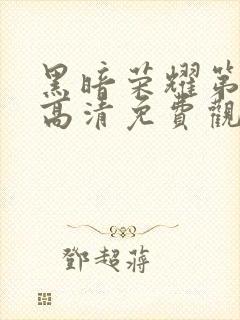 黑暗荣耀第
高清免費觀
鄧超蔣